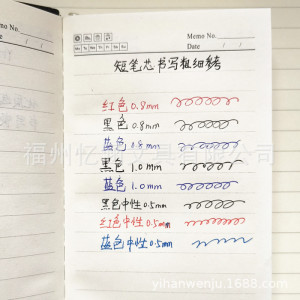 Memo No.
Memo No.
Mo Tu We Th Fr Sa Su
Date / /
短笔芯书写粗细参考
红色 0.8mm
黑色 0.8mm
蓝色 0.8mm
黑色 1.0mm
蓝色 1.0mm
黑色中性 0.5mm
红色中性 0.5mm
蓝色中性 0.5mm
yihanwenju.1688.com